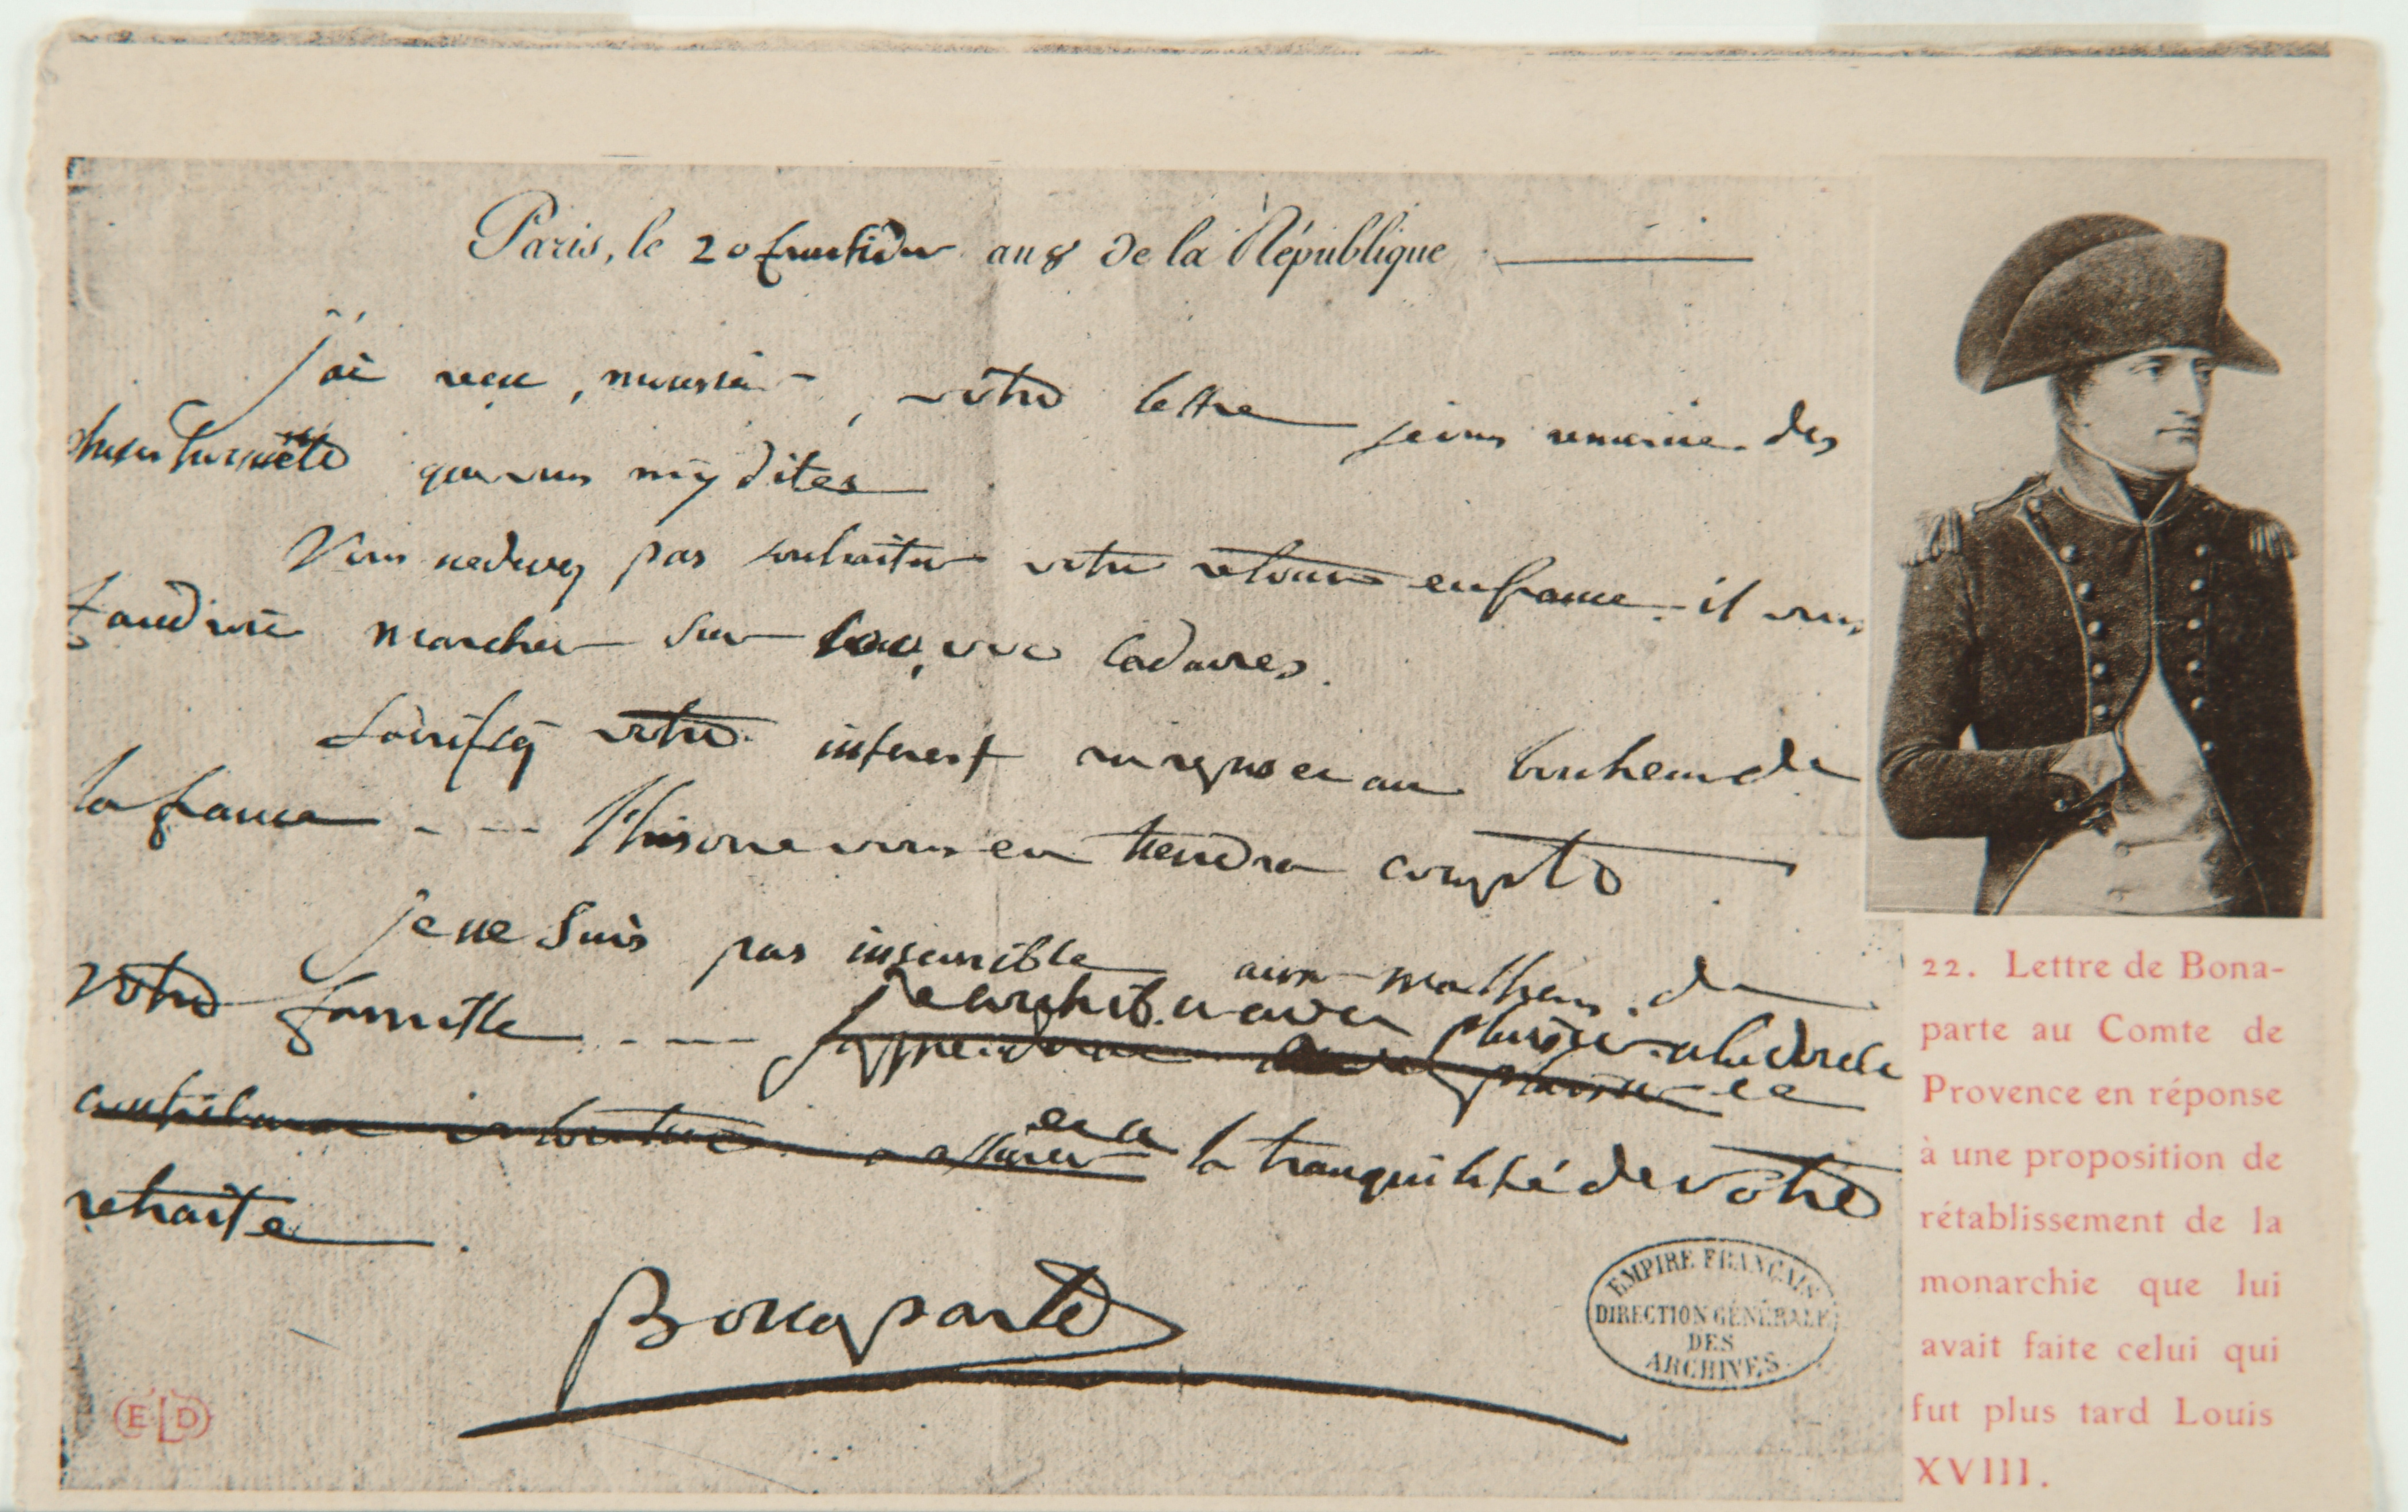 Paris, le 20 fructidor an 8 de la République
j'ai reçu, monsieur, votre lettre je vous remercie des
choses honnêtes que vous m'y dites
Vous ne devez pas souhaiter votre retour en france. il vous
faudroit marcher sur 100,000 cadavres.
Sacrifiez votre interest au repos et au bonheur de
la france --- l'histoire vous en tiendra compte.
je ne suis pas insensible aux malheurs de
votre famille ---- j'apprendrai avec plaisir
plaisir
contribuerai
à assurer
et a la tranquillité de votre
retraite.
Bonaparte
EMPIRE FRANÇAIS
DIRECTION GÉNÉRALE
DES
ARCHIVES
ELD
22. Lettre de Bona-
parte au Comte de
Provence en réponse
à une proposition de
rétablissement de la
monarchie que lui
avait faite celui qui
fut plus tard Louis
XVIII.